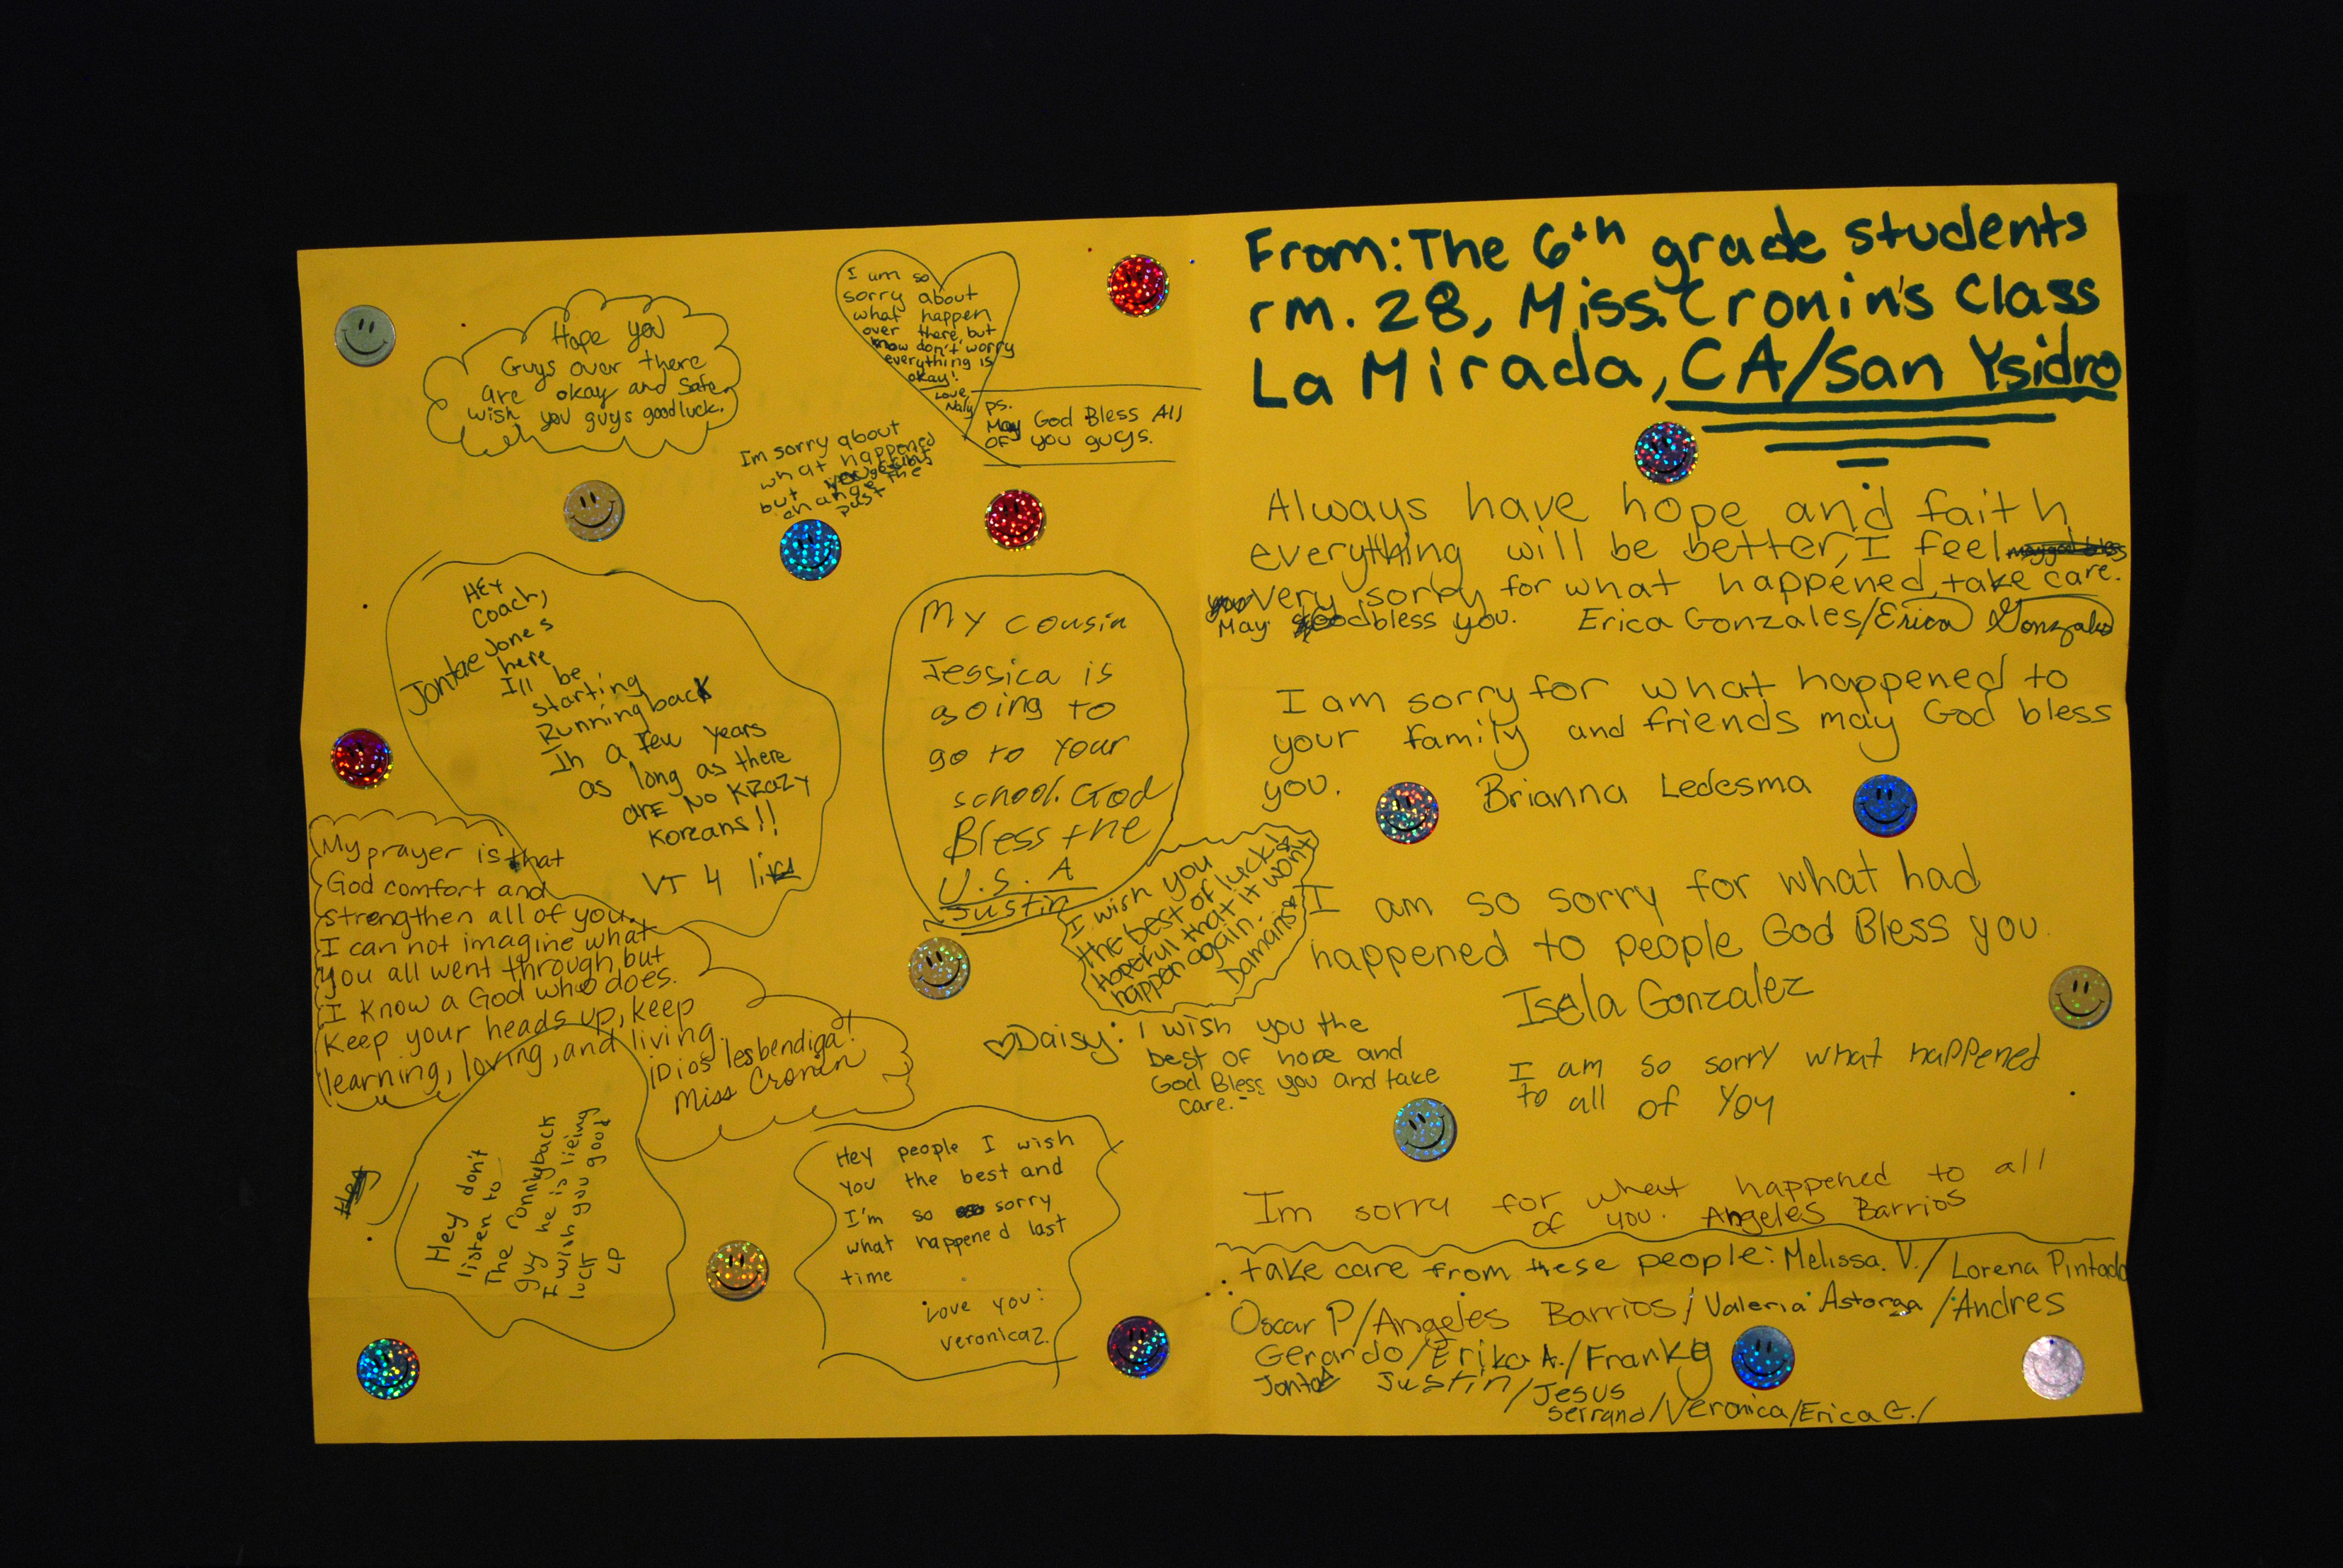 Hope you
Guys over there
are okay and safe
wish you guys good luck.
I am so
sorry about
what happen
over there, but
know don't worry
everything is
okay!
Love
Naly
ps.
May God Bless All
of you guys.
I'm sorry about
what happened
but
change the
past
HEY
Coach,
Jontae Jones
here
I'll be
starting
Runningback
In a few years
as long as there
are No KRazy
Koreans!!
VT 4 life
My cousin
Jessica is
going to
go to your
school. God
Bless the
U.S.A
Justin
My prayer is that
God comfort and
strengthen all of you.
I can not imagine what
you all went through but
I know a God who does.
Keep your heads up, keep
learning, loving, and living.
¡Dios lesbendiga!
Miss Cronin
I wish you
the best of luck &
Hopefull that it wont
happen again.
Damaris
Daisy: I wish you the
best of hope and
God Bless you and take
care.-
Hey
Hey don't
listen to
The ronnyback
guy he is lieing
I wish you good
luck LP
Hey people I wish
you the best and
I'm so sorry
what happened last
time
Love you:
Veronica Z.
From: The 6th grade students
rm. 28, Miss. Cronin's Class
La Mirada, CA/San Ysidro
Always have hope and faith
everything will be better, I feel
very sorry for what happened, take care.
May God bless you. Erica Gonzales/Erica Gonzales
I am sorry for what happened to
your family and friends may God bless
you. Brianna Ledesma
I am so sorry for what had
happened to people God Bless you.
Isela Gonzalez
I am so sorry what happened
to all of You
Im sorry for what happened to all
of you. Angeles Barrios
take care from these people: Melissa. V./ Lorena Pintado
Oscar P/Angeles Barrios/Valeria Astorga/Andres
Gerardo/Erika A./Franky
Jontae Justin/Jesus
Serrano/Veronica/Erica G./